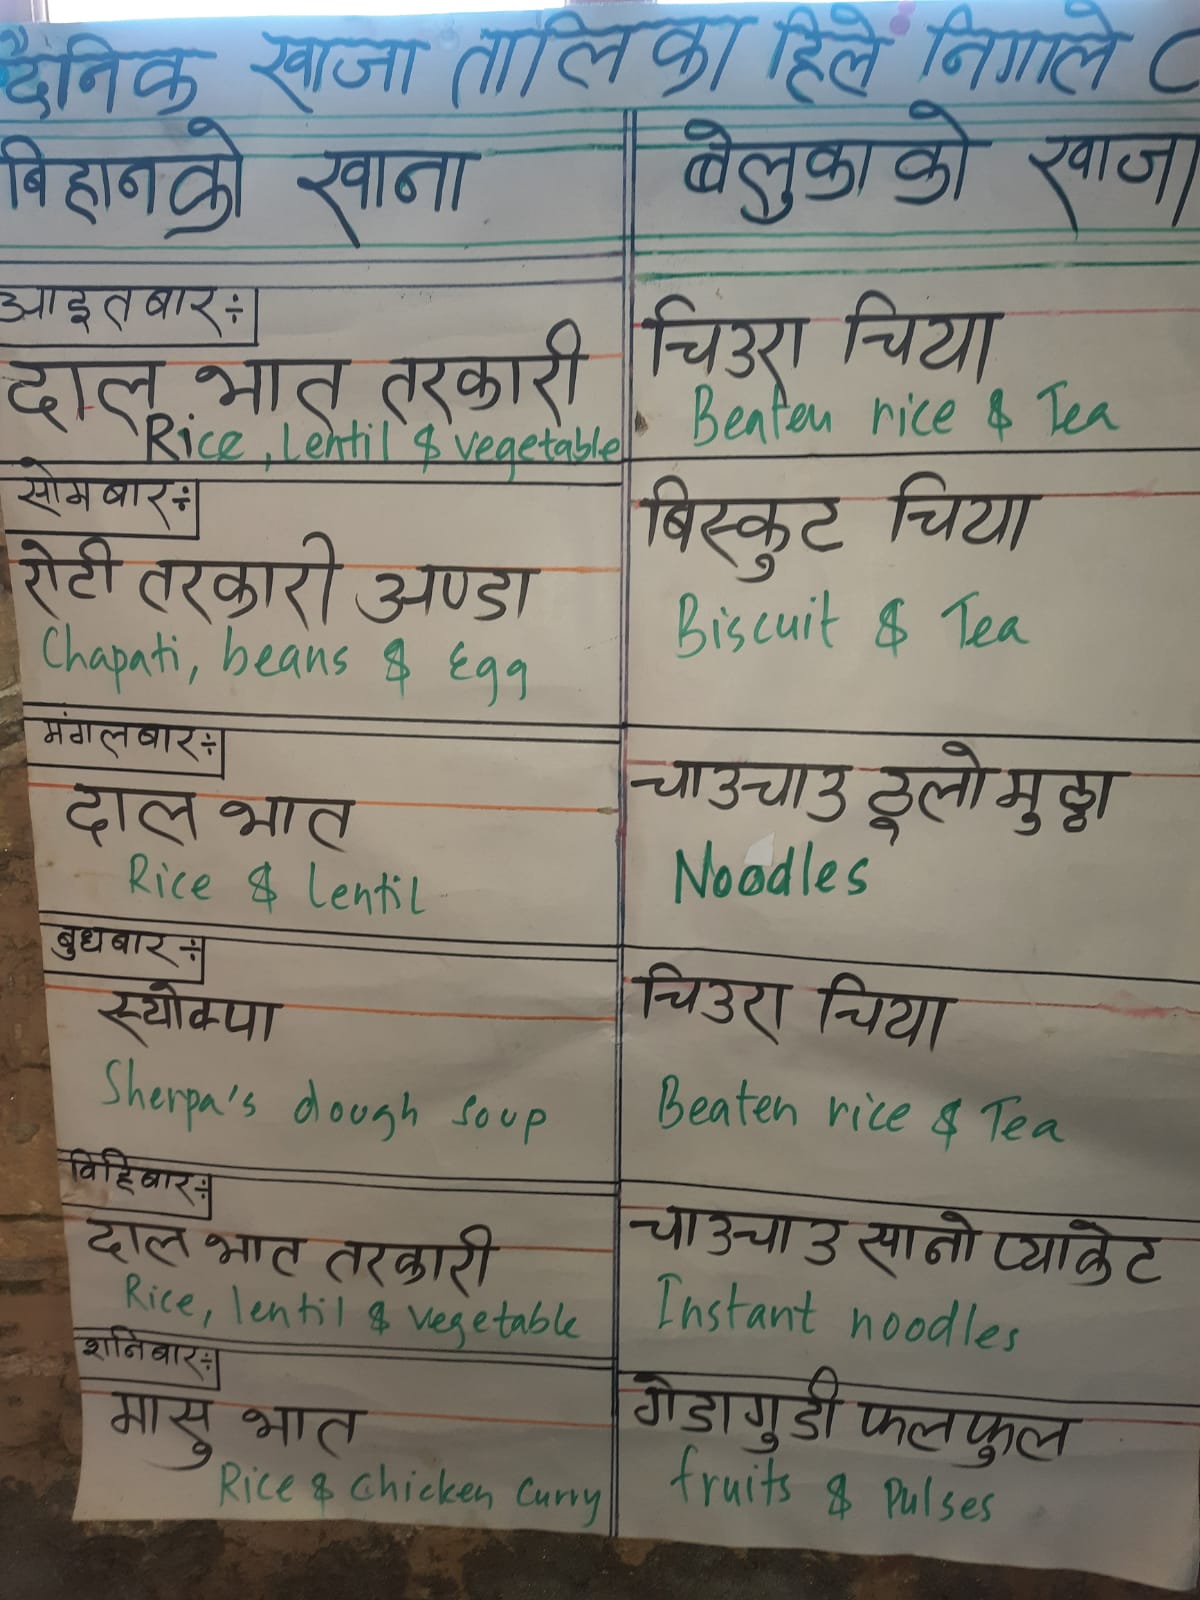 दैनिक खाजा तालिका हिले निगाले
बिहानको खाना
बेलुकाको खाजा
आइतबार÷
दाल भात तरकारी
Rice, Lentil & vegetable
चिउरा चिया
Beaten rice & Tea
सोमबार÷
रोटी तरकारी अण्डा
Chapati, beans & Egg
बिस्कुट चिया
Biscuit & Tea
मंगलबार÷
दाल भात
Rice & Lentil
चाउचाउ ठूलो मुठ्ठा
Noodles
बुधबार÷
स्योक्पा
Sherpa's dough soup
चिउरा चिया
Beaten rice & Tea
विहिबार÷
दाल भात तरकारी
Rice, lentil & vegetable
चाउचाउ सानो प्याकेट
Instant noodles
शनिबार÷
मासु भात
Rice & chicken curry
गेडागुडी फलफुल
fruits & pulses